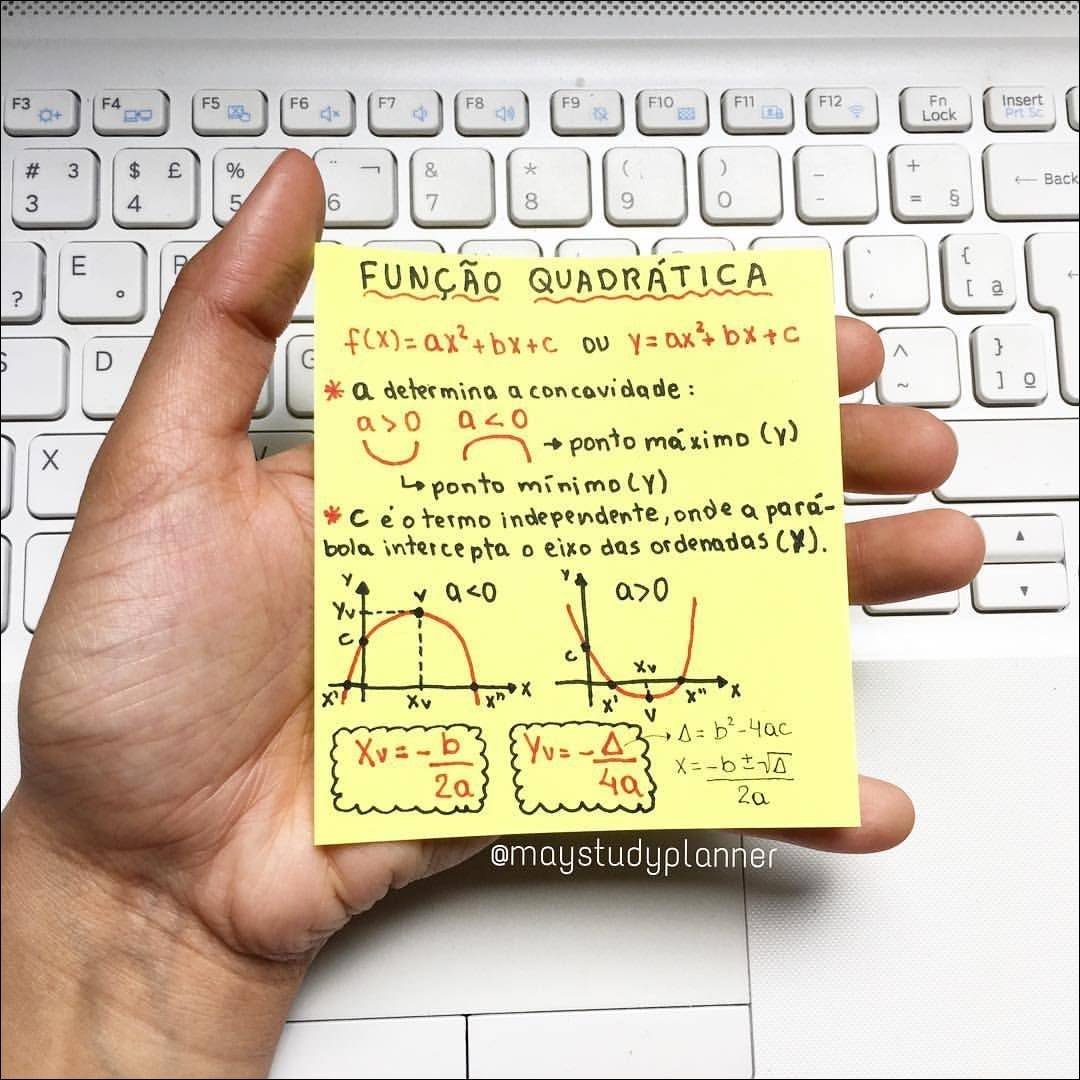 F3 F4 F5 F6 F7 F8 F9 F10 F11 F12 Fn Lock Insert Prt Sc
# 3 3 $ £ 4 % 5 ¨ ¬ 6 & 7 * 8 ( 9 ) 0 _ - + = § ← Back
E ° ? R ` ´ { [ ª
S D G ^ ~ } ] º
X V
FUNÇÃO QUADRÁTICA
f(x)=ax²+bx+c OU y=ax²+bx+c
* a determina a concavidade:
a>0 a<0 → ponto máximo (y)
↳ ponto mínimo (y)
* C é o termo independente, onde a pará-
bola intercepta o eixo das ordenadas (y).
y a<0 yv v c x' xv x" x
y a>0 c x' xv v x" x
Xv = -b/2a
Yv = -Δ/4a → Δ = b²-4ac
x = -b±√Δ/2a
@maystudyplanner